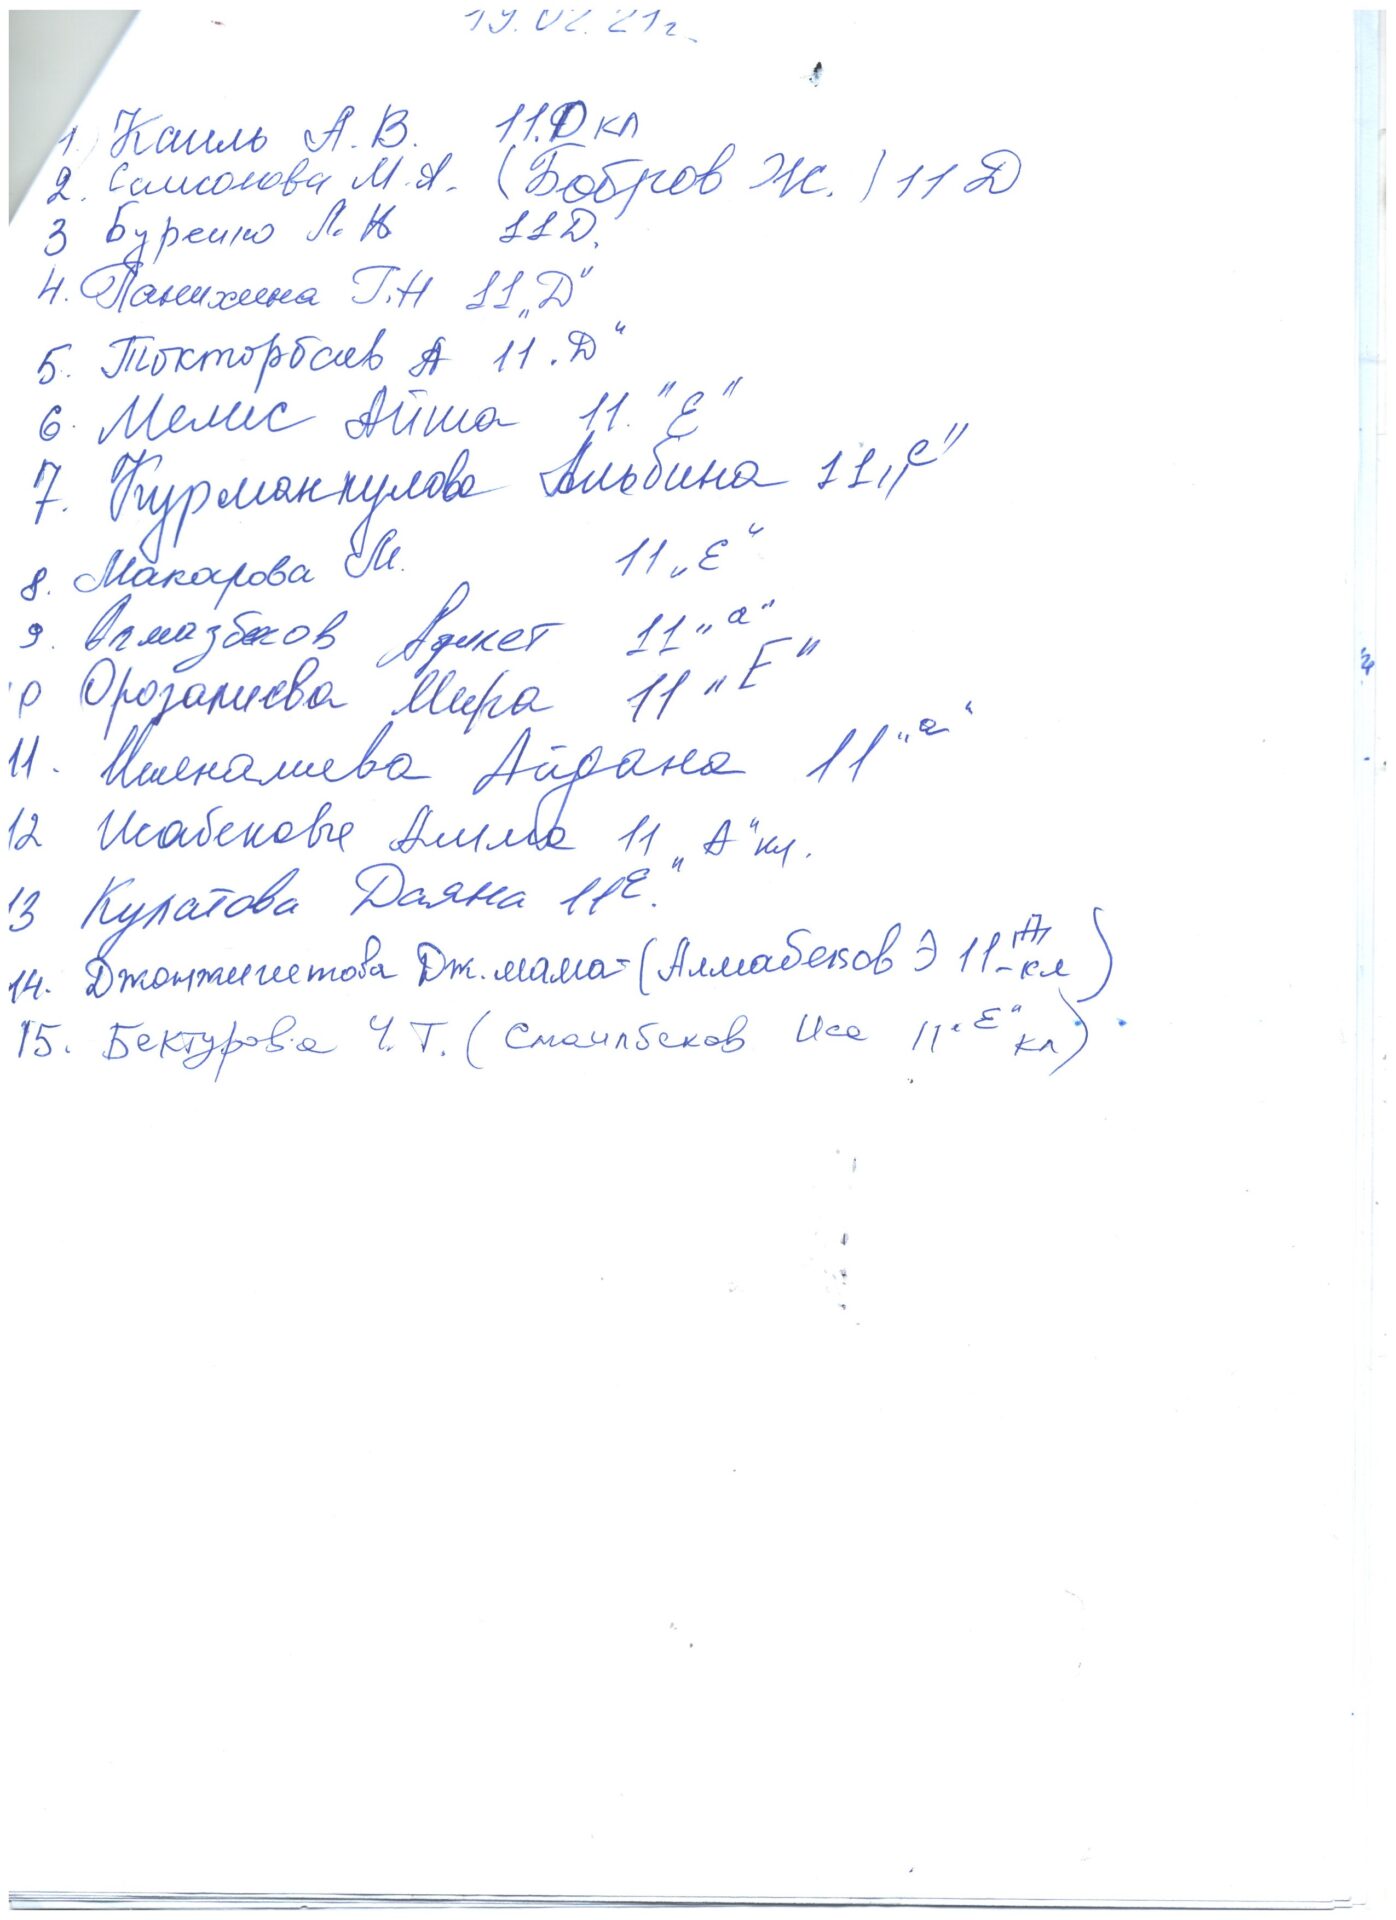 19.02.21г.
1. Каиль А.В. 11.D кл
2. Самсонова М.А. (Бобров Ж.) 11 D
3 Буренко Л.Н 11D.
4. Панихина Г.Н 11 „D"
5. Токторбаев А 11. „D"
6. Мелис Айша 11. "Е"
7. Курманкулова Альбина 11 „Е"
8. Макарова М. 11 „Е"
9. Алмазбеков Адилет 11 "а"
10 Орозалиева Мира 11 „Е"
11. Ишеналиева Айдана 11 "а"
12 Исабекова Алима 11 „А" кл.
13 Кулатова Даяна 11 „Е."
14. Джонжигитова Дж. мама-(Алмабеков Э 11-"А" кл)
15. Бектурова Ч.Т. (Смаилбеков Иса 11 "Е" кл)